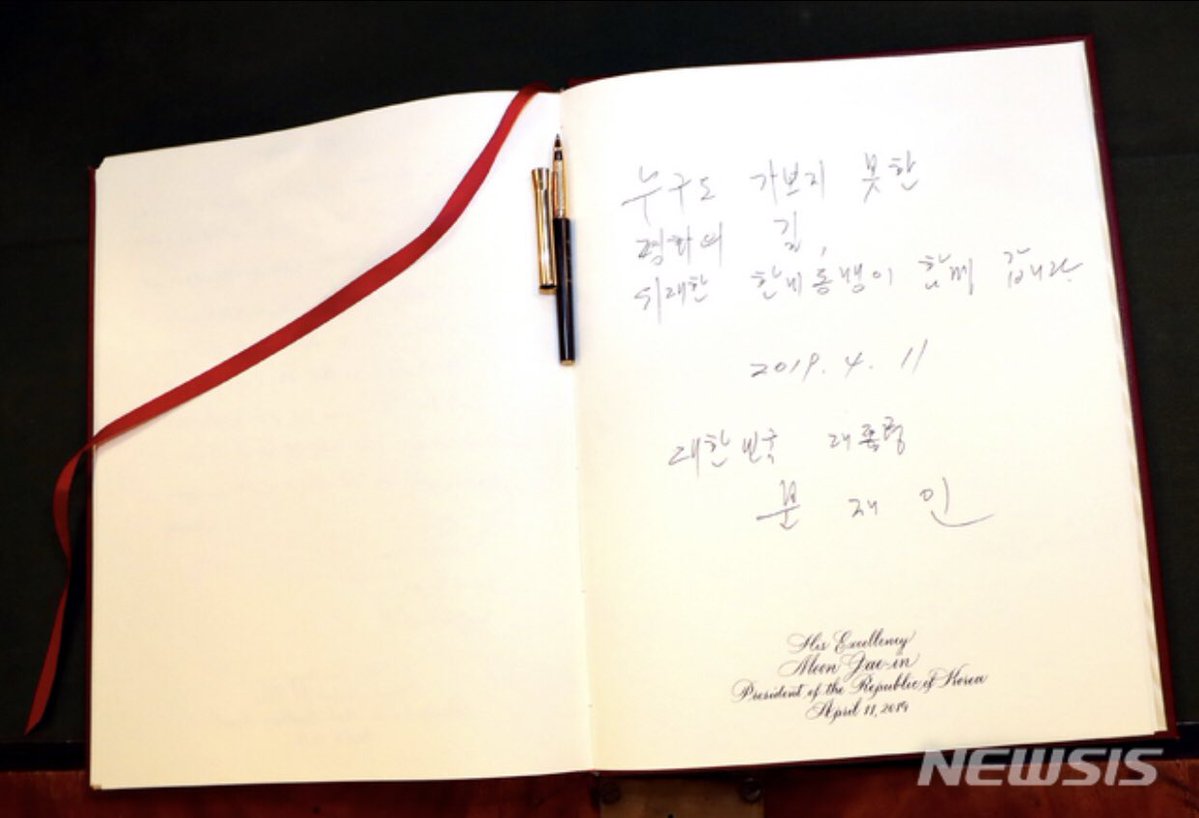 누구도 가보지 못한
평화의 길,
위대한 한미동맹이 함께 갑니다.
2019. 4. 11
대한민국 대통령
문 재 인
His Excellency
Moon Jae-in
President of the Republic of Korea
April 11, 2019
NEWSIS